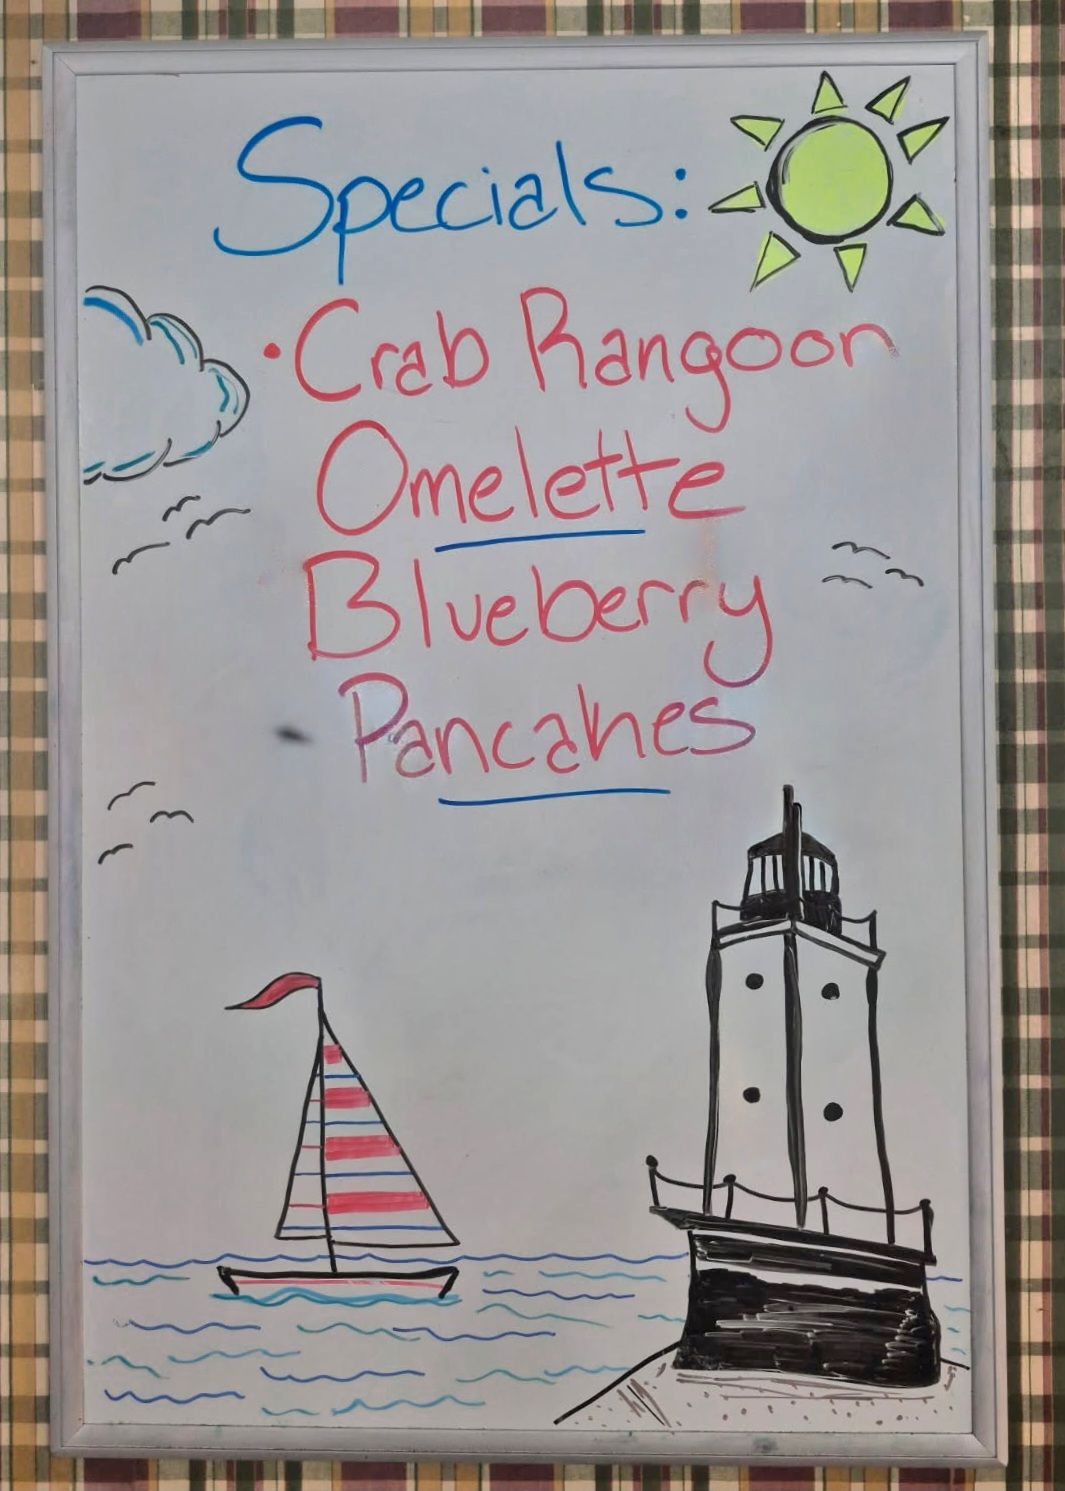 Specials:
• Crab Rangoon
Omelette
Blueberry
Pancakes